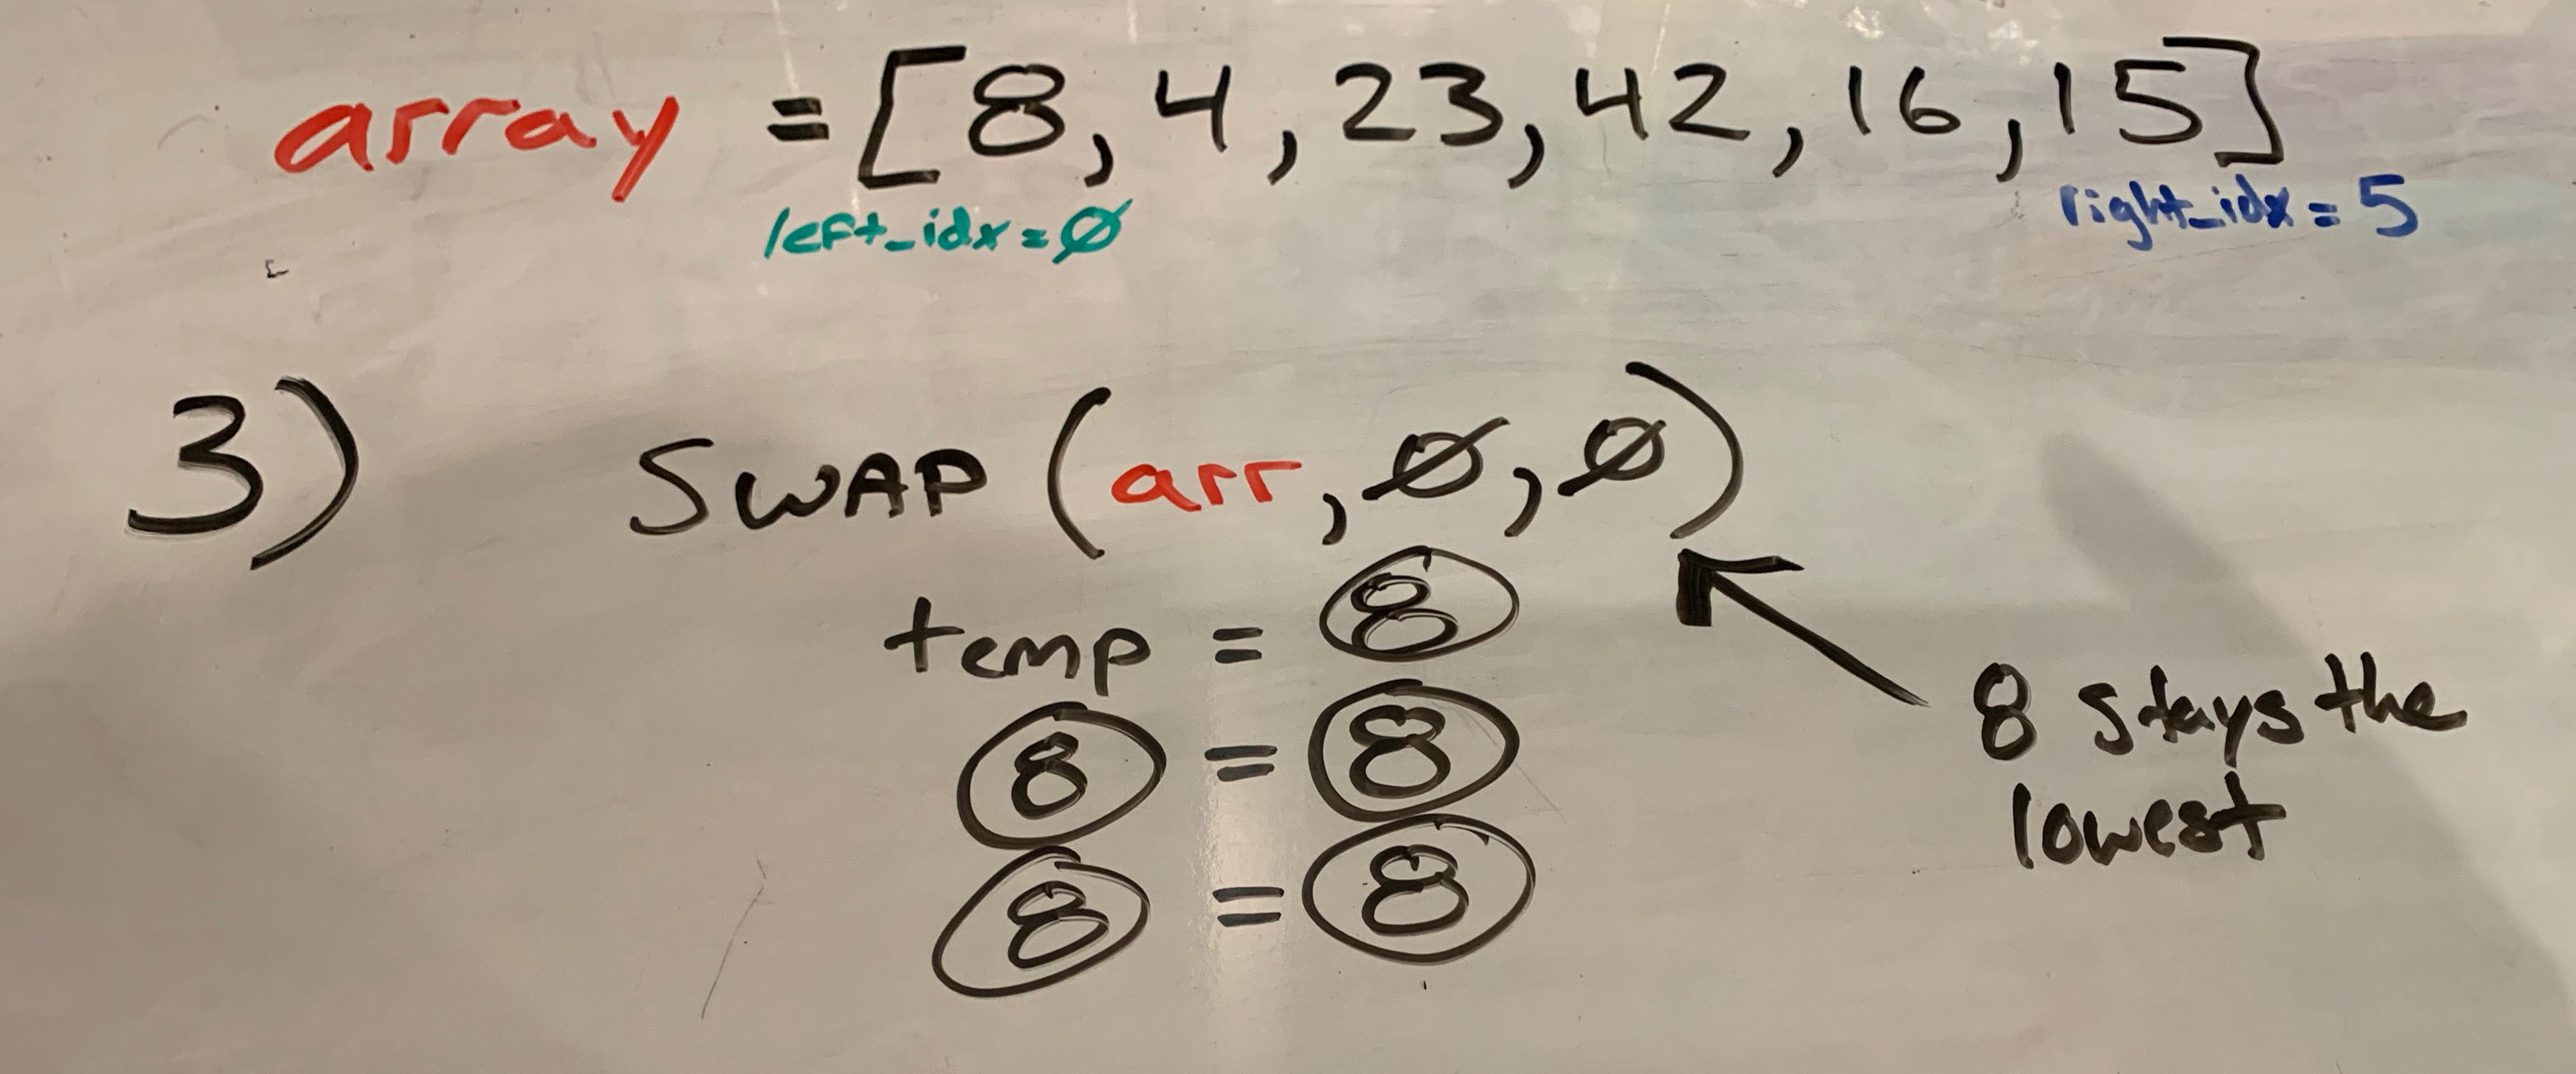 array = [8, 4, 23, 42, 16, 15]
left_idx = Ø
right_idx = 5
3) SWAP (arr, Ø, Ø)
temp = 8
8 = 8
8 = 8
8 stays the
lowest